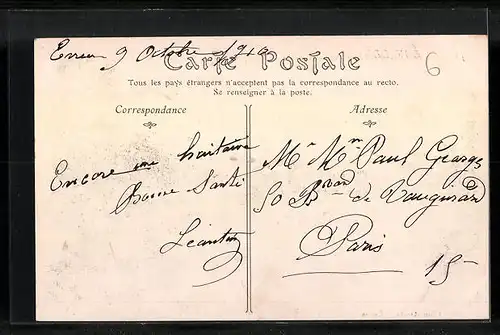 9 Octobre 1910
Carte Postale
Tous les pays étrangers n'acceptent pas la correspondance au recto.
Se renseigner à la poste.
6
Correspondance
Adresse
Encore une huitaine
Bonne Santé
Mr Mme Paul Georges
50 Bvard de Vaugirard
Paris
15